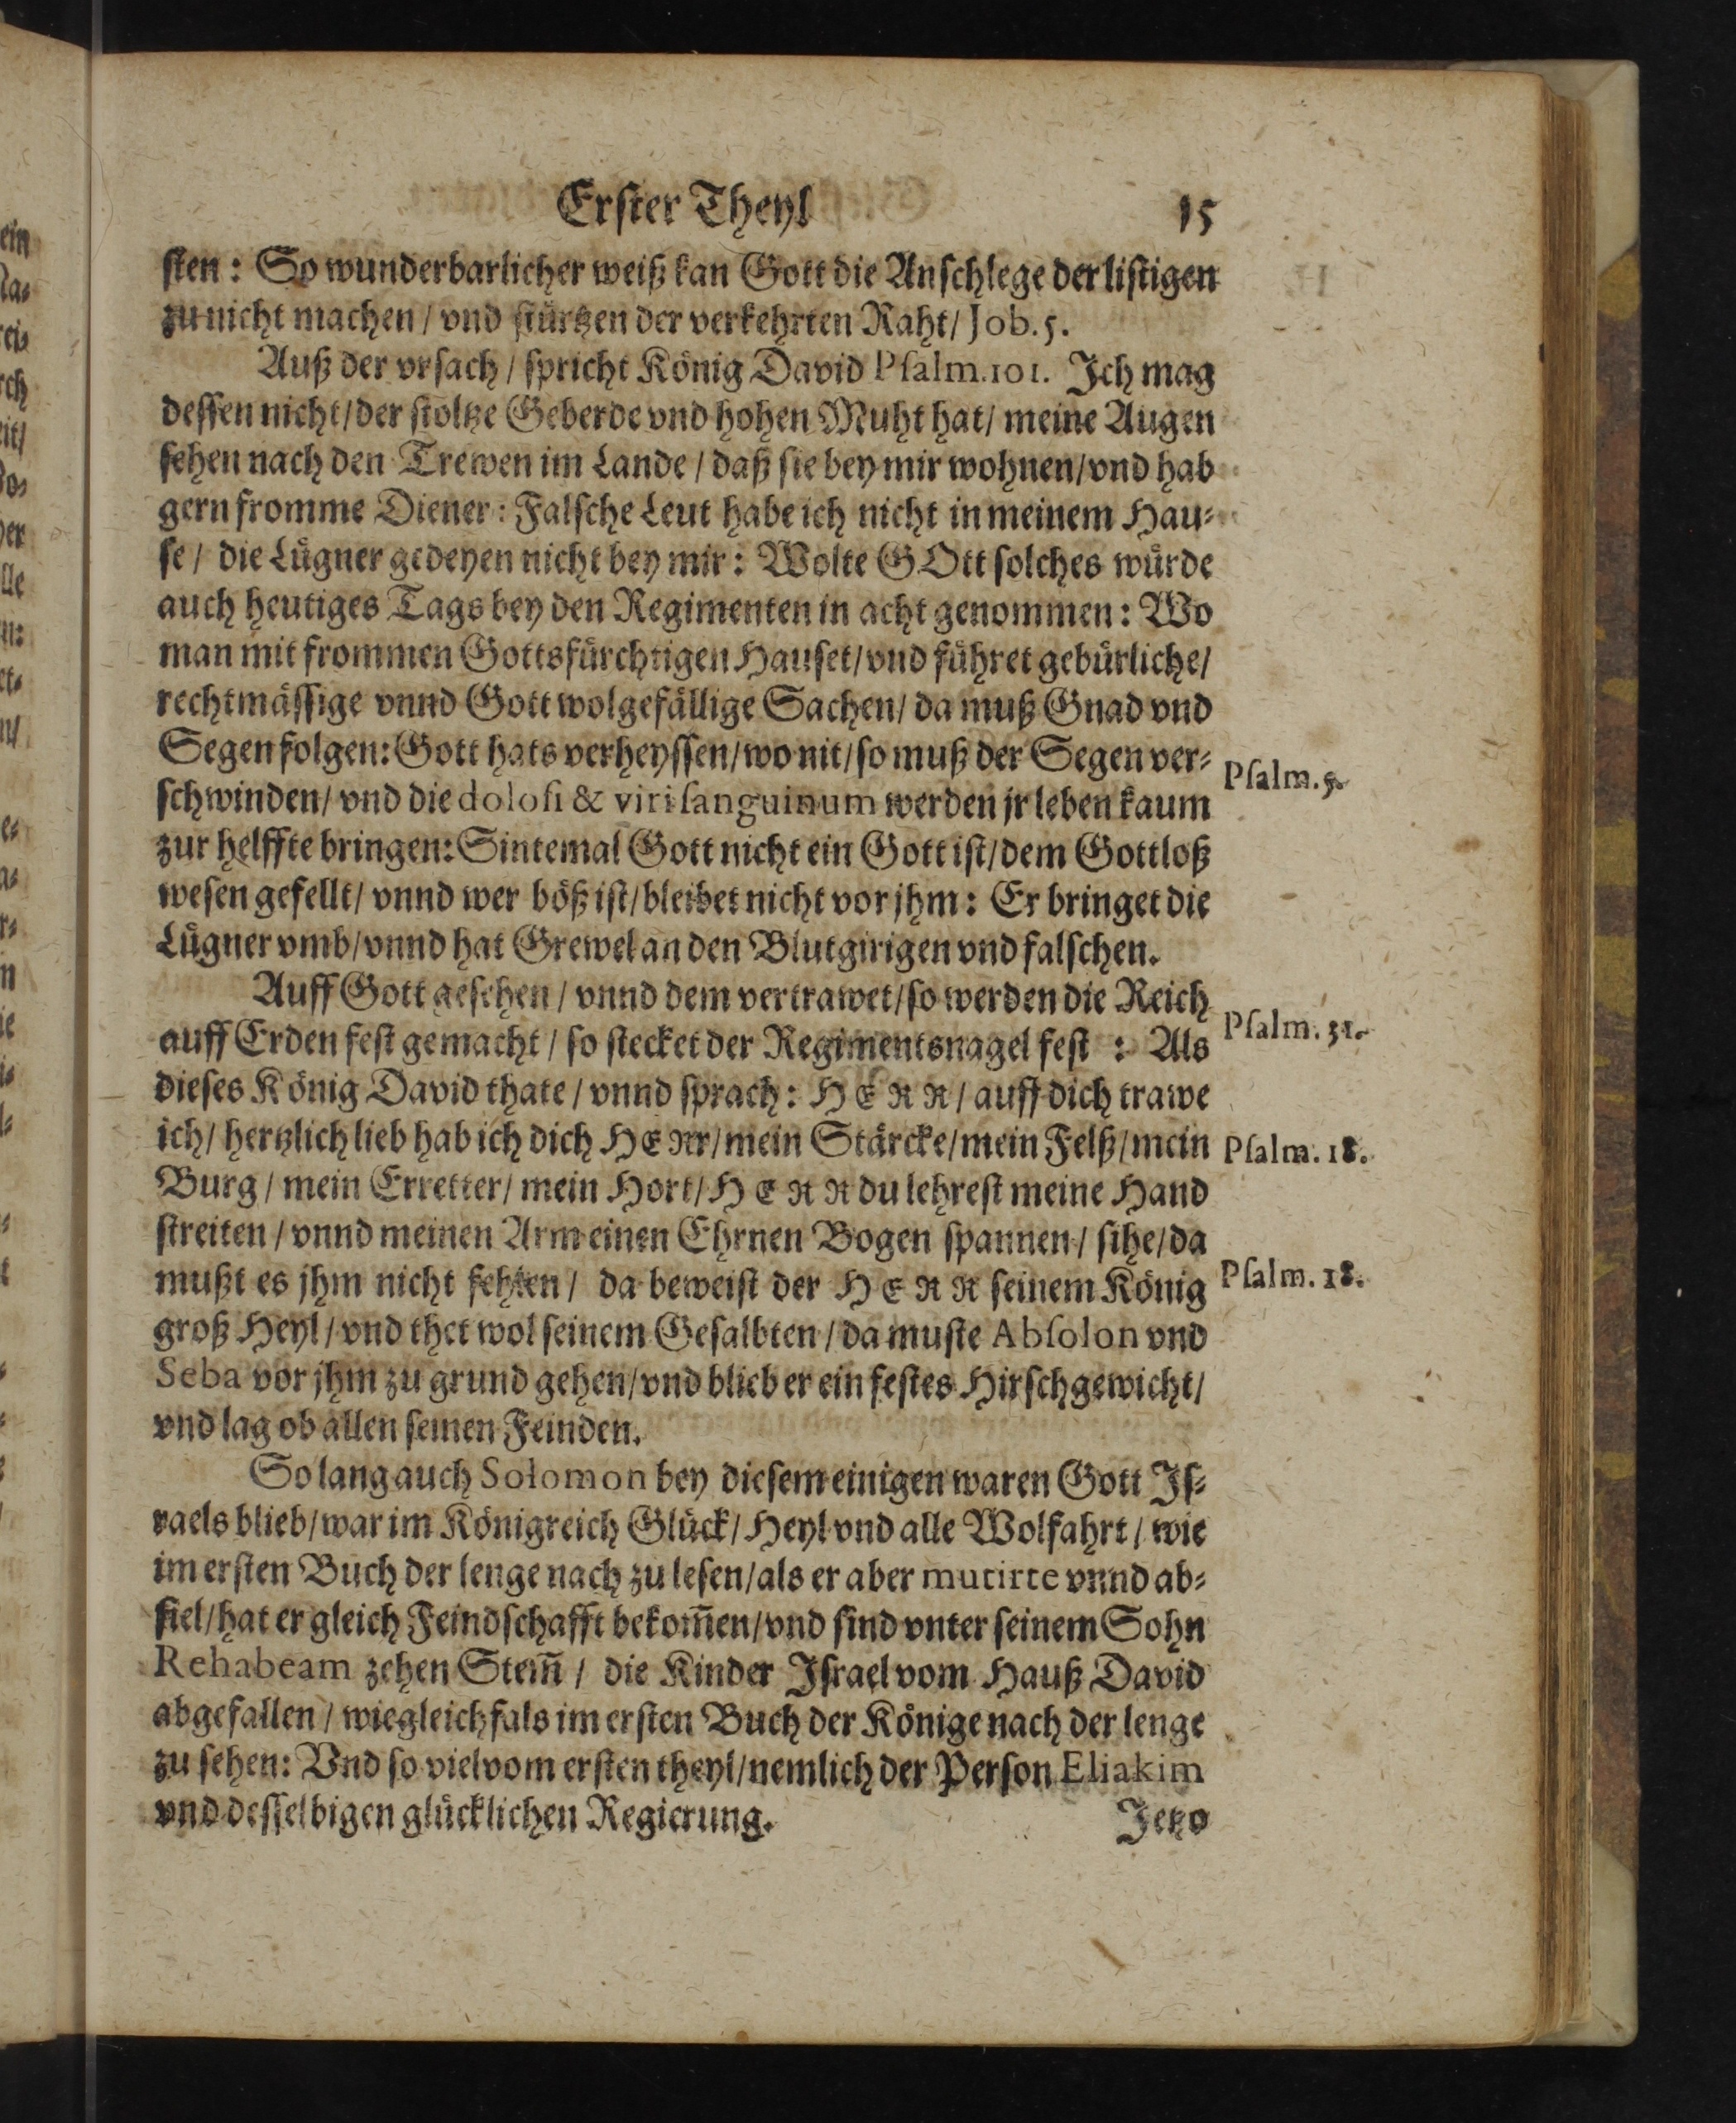 Erster Theyl 15
sten: So wunderbarlicher weiß kan Gott die Anschlege der listigen
zu nicht machen / vnd stürtzen der verkehrten Raht / Job. 5.
Auß der vrsach / spricht König David Psalm. 101. Ich mag
dessen nicht / der stoltze Geberde vnd hohen Muht hat / meine Augen
sehen nach den Trewen im Lande / daß sie bey mir wohnen / vnd hab
gern fromme Diener: Falsche Leut habe ich nicht in meinem Hau-
se / die Lügner gedeyen nicht bey mir: Wolte GOtt solches würde
auch heutiges Tags bey den Regimenten in acht genommen: Wo
man mit frommen Gottsfürchtigen Hauset / vnd führet gebürliche /
rechtmässige vnnd Gott wolgefällige Sachen / da muß Gnad vnd
Segen folgen: Gott hats verheyssen / wo nit / so muß der Segen ver-
Psalm. 5.
schwinden / vnd die dolosi & viri sanguinum werden jr leben kaum
zur helffte bringen: Sintemal Gott nicht ein Gott ist / dem Gottloß
wesen gefellt / vnnd wer böß ist / bleibet nicht vor jhm: Er bringet die
Lügner vmb / vnnd hat Grewel an den Blutgirigen vnd falschen.
Auff Gott gesehen / vnnd dem vertrawet / so werden die Reich
Psalm. 31.
auff Erden fest gemacht / so stecket der Regimentsnagel fest : Als
dieses König David thate / vnnd sprach: HERR / auff dich trawe
ich / hertzlich lieb hab ich dich HERr / mein Stärcke / mein Felß / mein
Psalm. 18.
Burg / mein Erretter / mein Hort / HERR du lehrest meine Hand
streiten / vnnd meinen Arm einen Ehrnen Bogen spannen / sihe / da
mußt es jhm nicht fehlen / da beweist der HERR seinem König
Psalm. 18.
groß Heyl / vnd thet wol seinem Gesalbten / da muste Absolon vnd
Seba vor jhm zu grund gehen / vnd blieb er ein festes Hirschgewicht /
vnd lag ob allen seinen Feinden.
So lang auch Solomon bey diesem einigen waren Gott Is-
raels blieb / war im Königreich Glück / Heyl vnd alle Wolfahrt / wie
im ersten Buch der lenge nach zu lesen / als er aber mutirte vnnd ab-
fiel / hat er gleich Feindschafft bekom̃en / vnd sind vnter seinem Sohn
Rehabeam zehen Stem̃ / die Kinder Israel vom Hauß David
abgefallen / wie gleichfals im ersten Buch der Könige nach der lenge
zu sehen: Vnd so viel vom ersten theyl / nemlich der Person Eliakim
vnd desselbigen glücklichen Regierung.
Jetzo